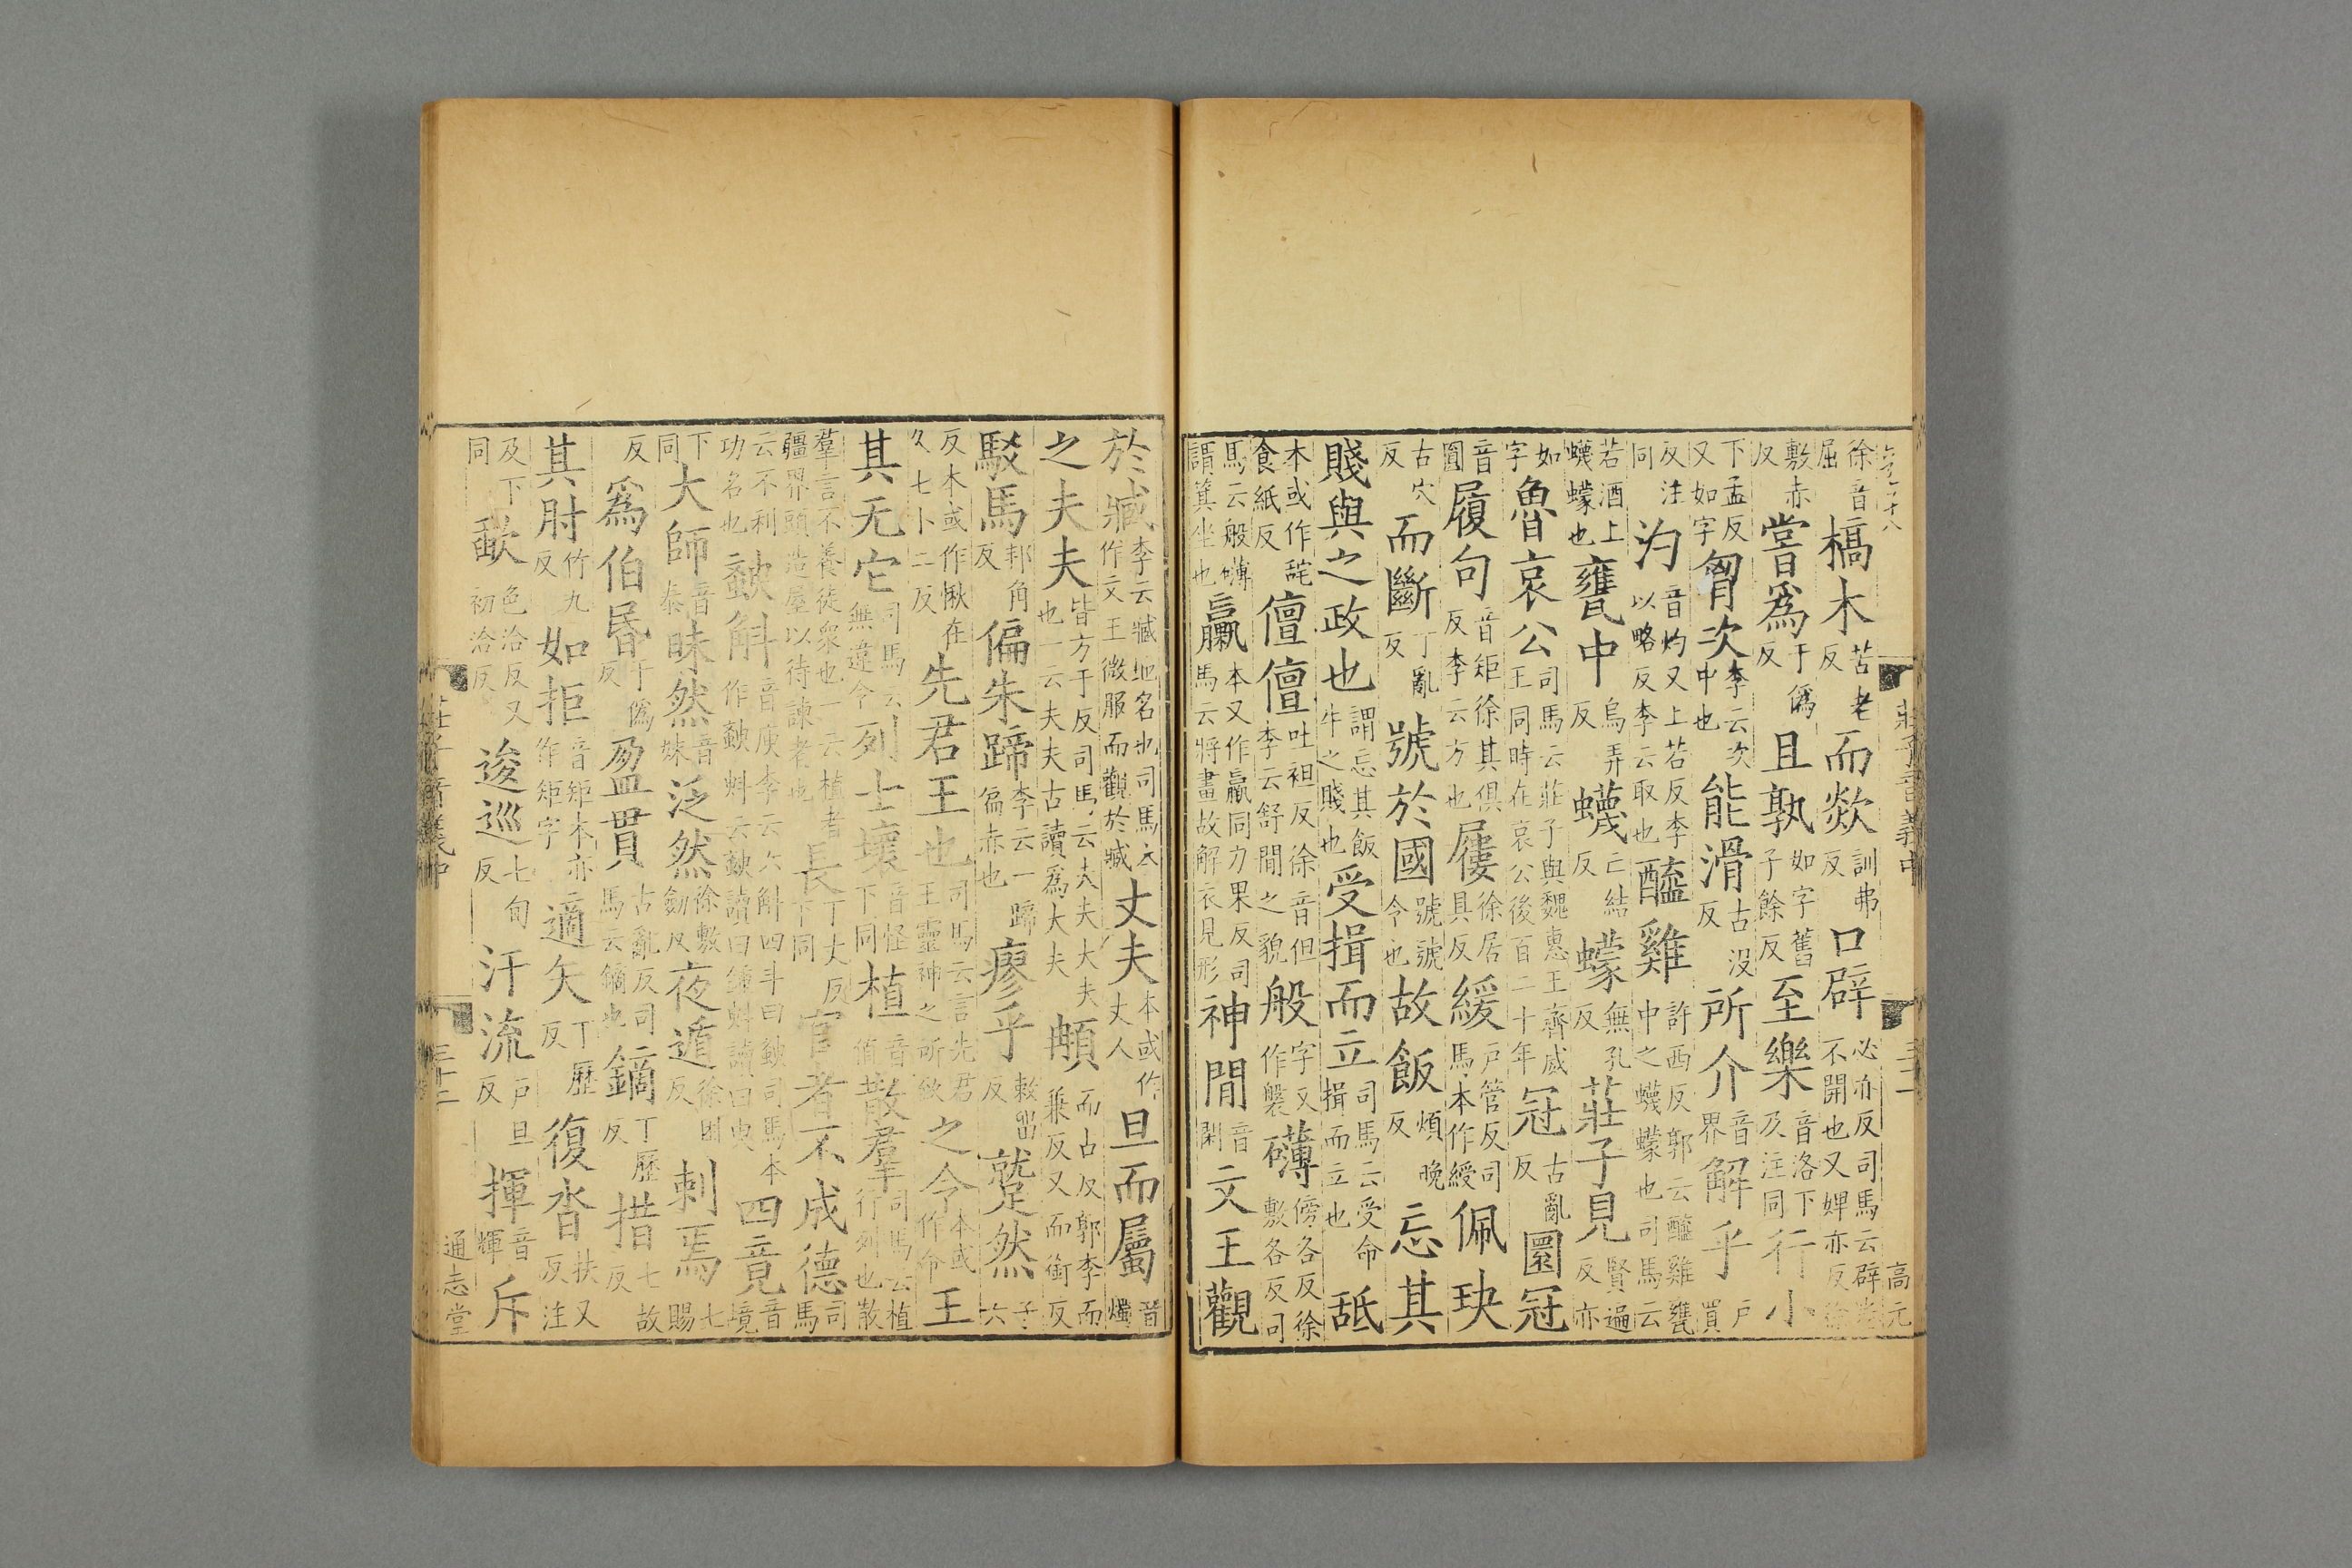 徐音屈槁木苦老反而欻訓弗反口辟必亦反司馬云辟卷不開也又婢亦反徐
敷赤反嘗爲于僞反且孰如字舊子餘反至樂音洛下及注同行小
下孟反又如字胷次李云次中也能滑古沒反所介音界解乎戶買
反注同汋音灼又上若反李以略反李云取也醯雞許西反郭云醯雞甕中之蠛蠓也司馬云
若酒上蠛蠓也甕中烏弄反蠛亡結反蠓無孔反莊子見賢遍反亦
如字魯哀公司馬云莊子與魏惠王齊威王同時在哀公後百二十年冠古亂反圜冠
音圓履句音矩徐其俱反李云方也屨徐居具反緩戶管反司馬本作綬佩玦
古穴反而斷丁亂反號於國號號令也故飯煩晚反忘其
賤與之政也謂忘其飯牛之賤也受揖而立司馬云受命揖而立也舐
本或作䑛食紙反儃儃吐袒反徐音但李云舒閒之貌般字又作褩礴傍各反徐敷各反司
馬云般礴謂箕坐也臝本又作臝同力果反司馬云將畫故解衣見形神閒音閑文王觀
莊子音義中
三十二
高元
於臧李云臧地名也司馬本作文王微服而觀於臧丈夫本或作丈人旦而屬音燭
之夫夫皆方于反司馬云夫夫大夫也一云夫夫古讀爲大夫䫇而占反郭李而兼反又而銜反
駁馬邦角反偏朱蹄李云一蹄偏赤也瘳乎敕留反蹵然子六
反本或作愀在久七小二反先君王也司馬云言先君王靈神之所致之令本或作命王
其无它司馬云無違令列士壞音怪下同植音值散羣司馬云植行列也散
羣言不養徒衆也一云植者疆界頭造屋以待諫者也長丁丈反下同官者不成德司馬
云不利功名也斔斛音庾李云六斛四斗曰斔司馬本作斔𣁬云斔讀曰鍾𣁬讀曰臾四竟音境
下同大師音泰昧然音妹泛然徐敷劒反夜遁徐困反刺焉七賜
反爲伯昏于僞反盈貫古亂反司馬云鏑也鏑丁歷反措七故反
其肘竹九反如拒音矩本亦作矩字適矢丁歷反復沓扶又反注
及下同㰱色洽反又初洽反逡巡七旬反汗流戶旦反揮音輝斥
莊子音義中
三十二
通志堂